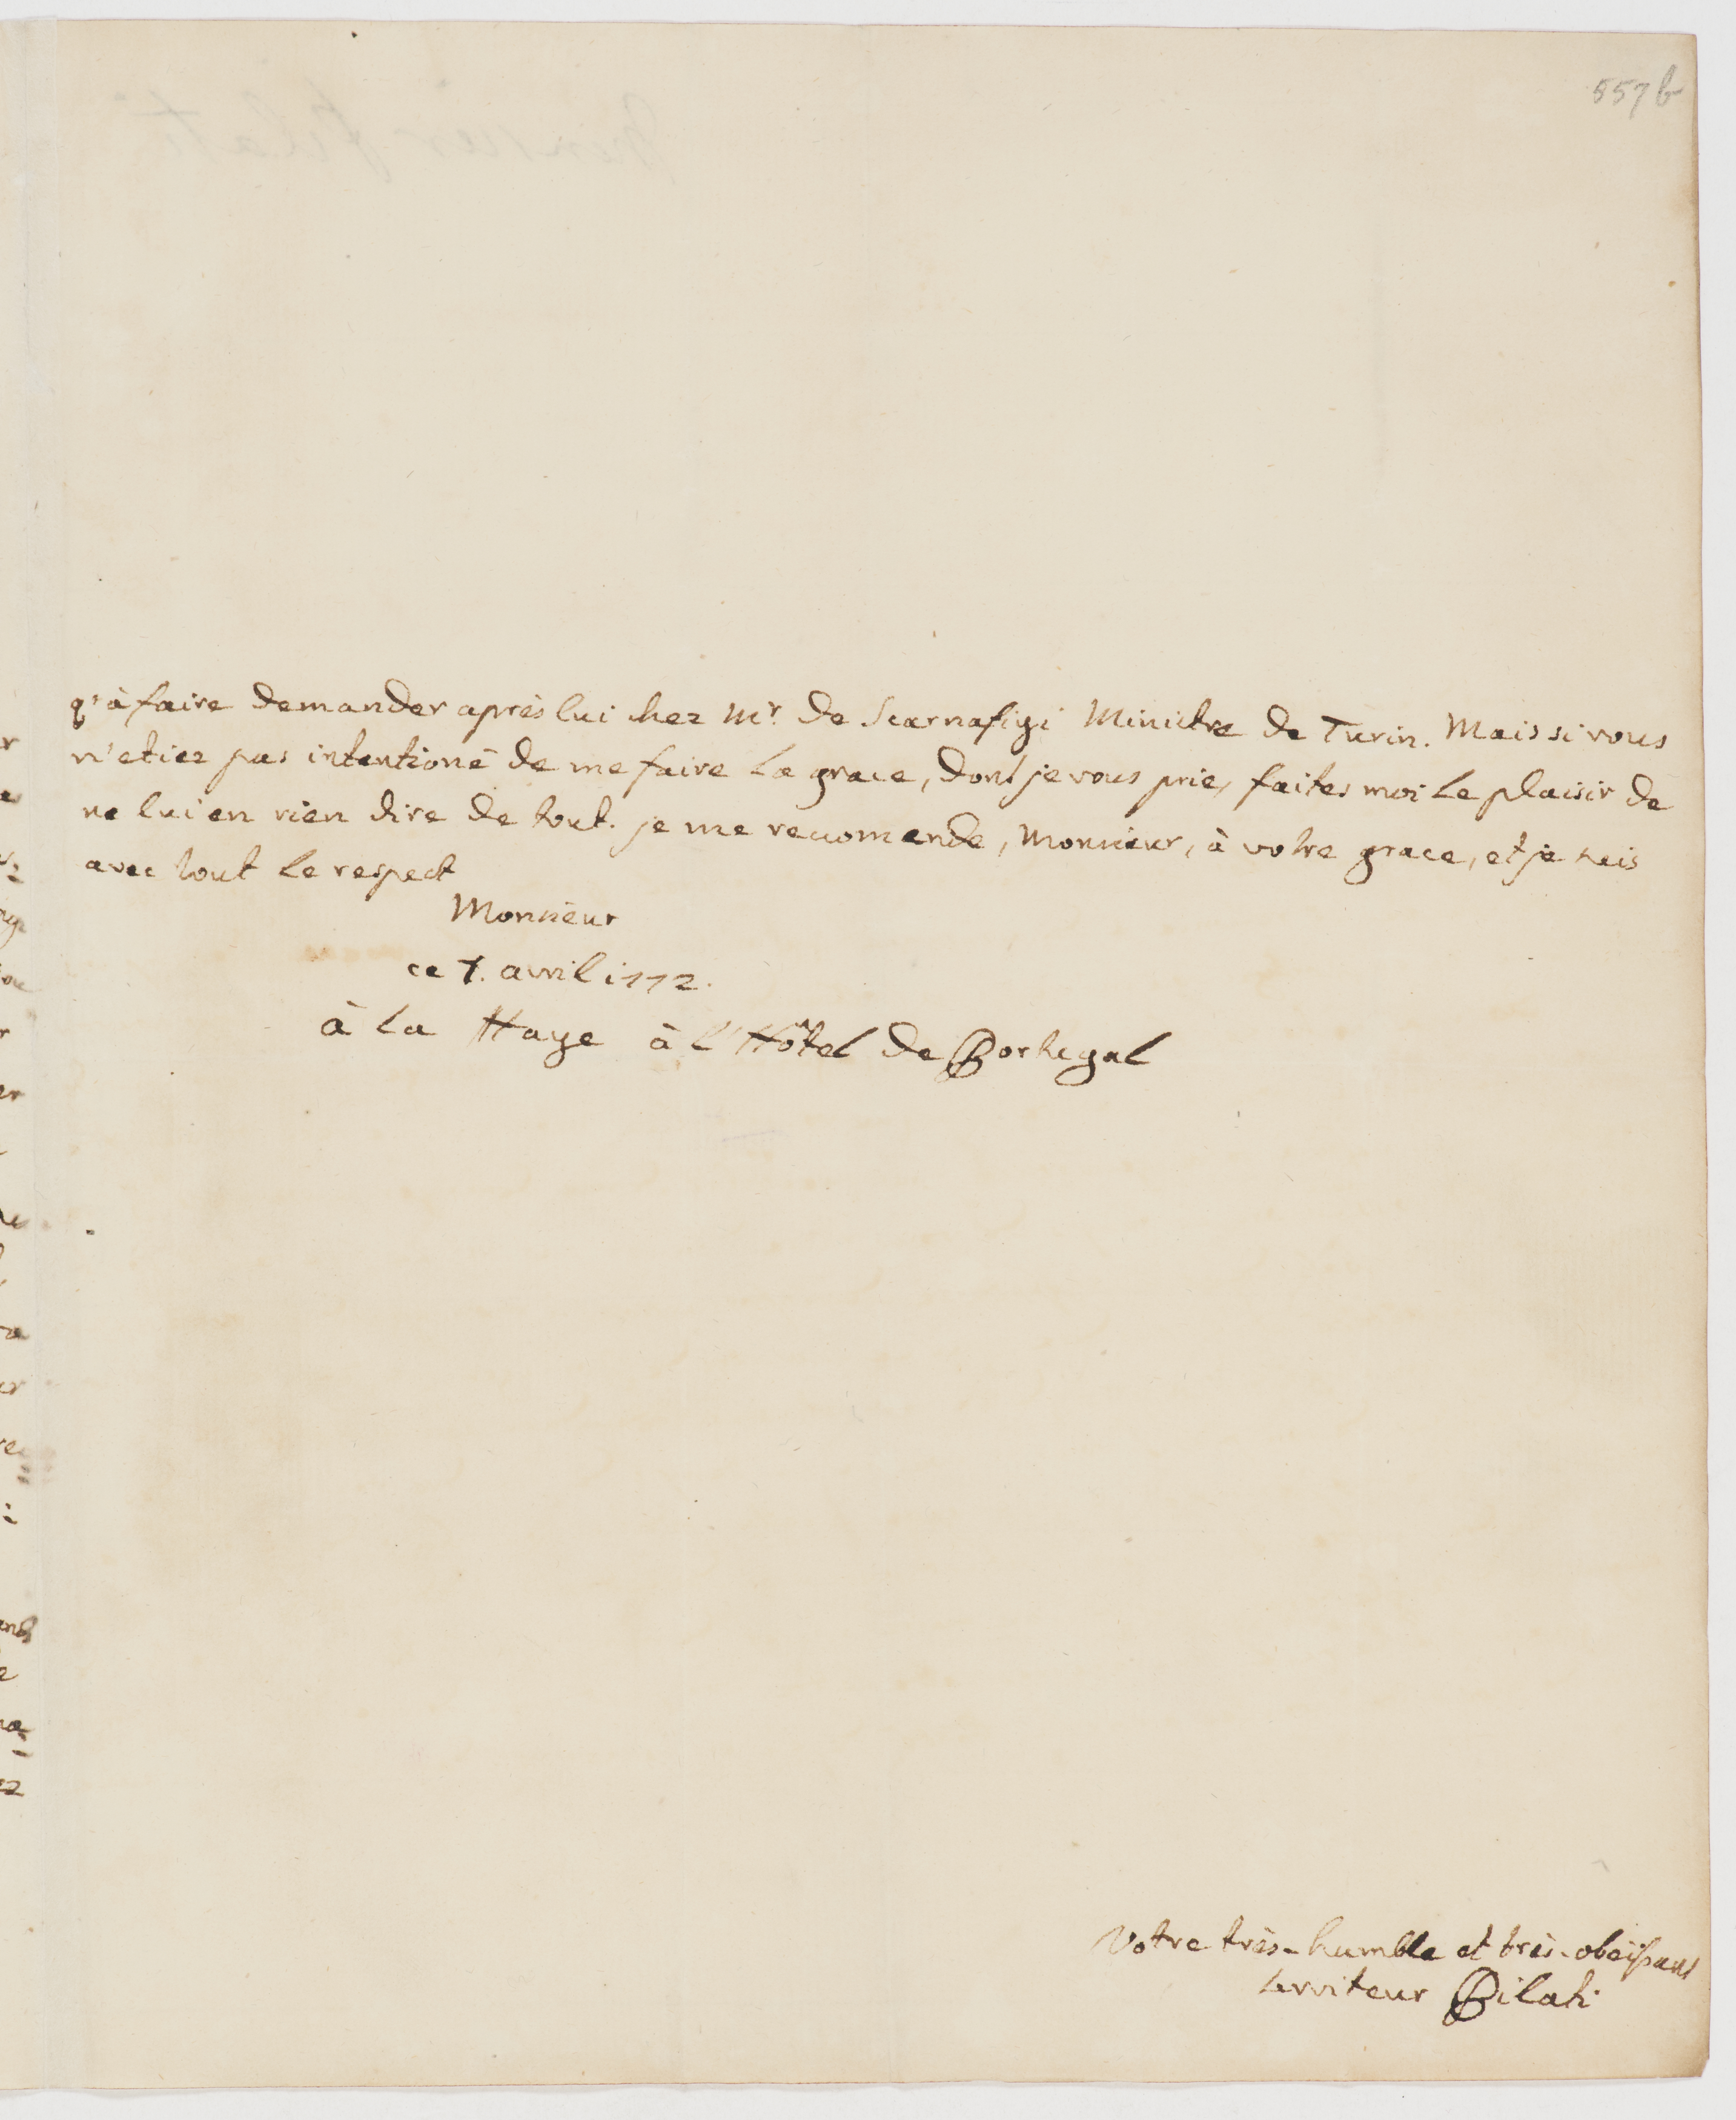 557 b
q'à faire demander après lui chez Mr. De Scarnafigi Ministre de Turin. Mais si vous
n'etiez pas intentioné de me faire la grace, dont je vous prie, faites moi le plaisir de
ne lui en rien dire de tout. je me recomende, Monsieur, à votre grace, et je suis
avec tout le respect
Monsieur
ce 7. avril 1772.
à la Haye à l'Hôtel de Portugal
Votre très-humble et très-obéissant
serviteur Pilati